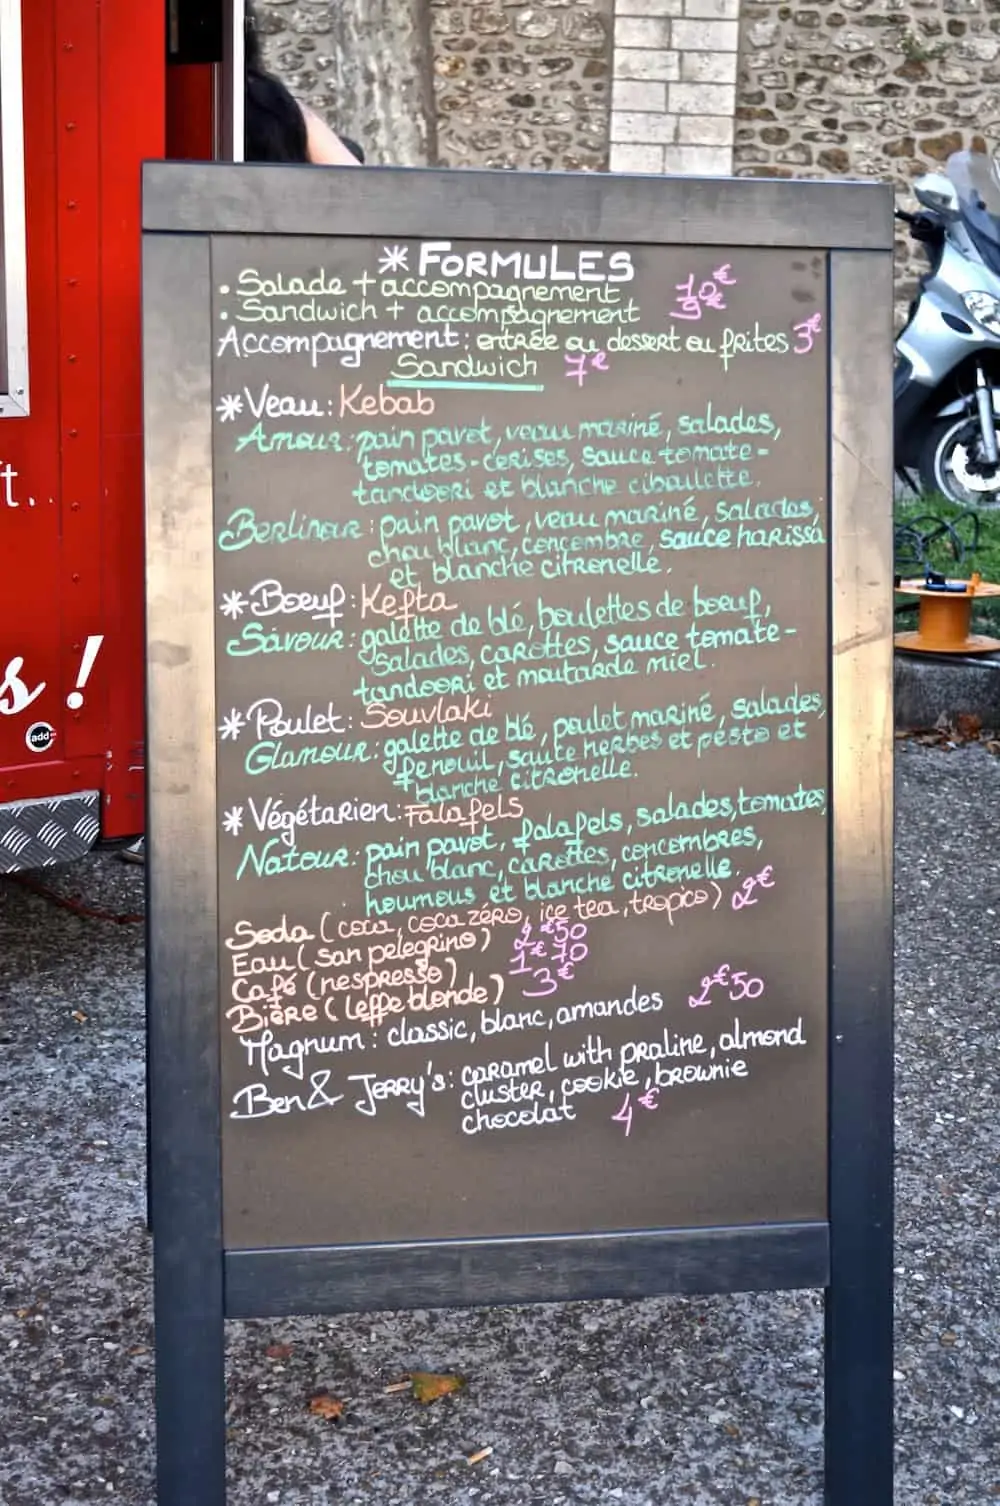 * FORMULES
• Salade + accompagnement 10€
• Sandwich + accompagnement 9€
Accompagnement : entrée ou dessert ou frites 3€
Sandwich 7€
* Veau : Kebab
Amour : pain pavot, veau mariné, salades,
tomates-cerises, sauce tomate-
tandoori et blanche ciboulette.
Berlinour : pain pavot, veau mariné, salades,
chou blanc, concombre, sauce harissa
et blanche citronelle.
* Boeuf : Kefta
Savour : galette de blé, boulettes de boeuf,
salades, carottes, sauce tomate-
tandoori et moutarde miel.
* Poulet : Souvlaki
Glamour : galette de blé, poulet mariné, salades,
fenouil, saute herbes et pesto et
blanche citronelle.
* Végétarien : Falafels
Natour : pain pavot, falafels, salades, tomates,
chou blanc, carottes, concombres,
houmous et blanche citronelle.
Soda (coca, coca zéro, ice tea, tropico) 2€
Eau (san pelegrino) 2€50
Café (nespresso) 1€70
Bière (leffe blonde) 3€
Magnum : classic, blanc, amandes 2€50
Ben & Jerry's : caramel with praline, almond
cluster, cookie, brownie
chocolat 4€
t..
s !
add